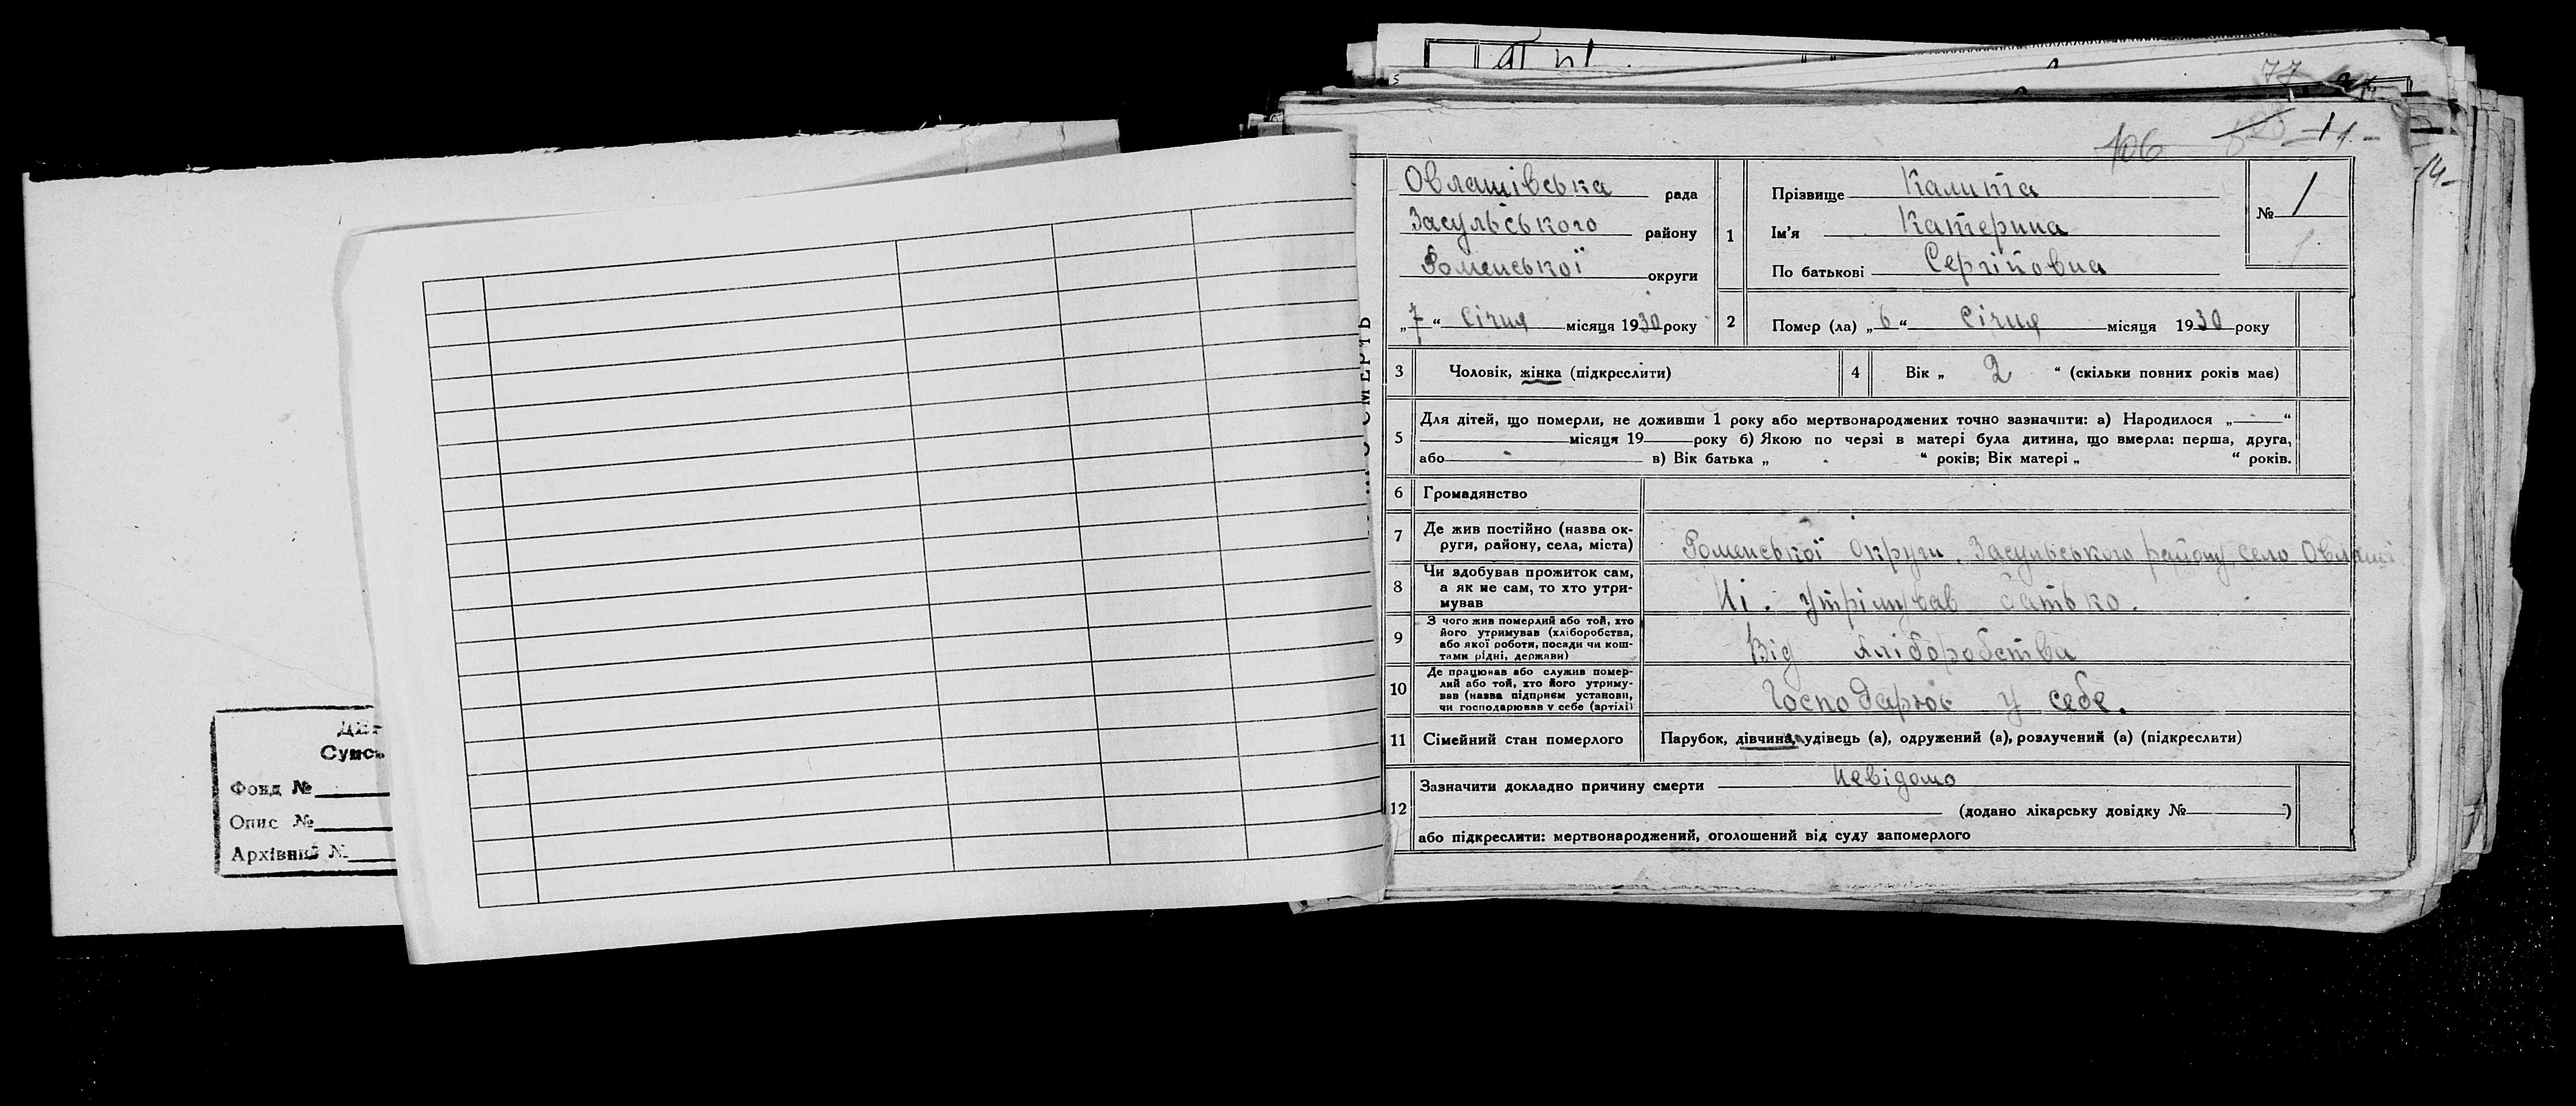 Сумсь
Фонд №
Опис №
Архівний №
77
106
-11-
-14-
Овлашівська рада
Засульського району
Роменської округи
„7“ Січня місяця 1930 року
1
Прізвище Калита
Ім'я Катерина
По батькові Сергіївна
№ 1
2 Помер (ла) „6“ Січня місяця 1930 року
3 Чоловік, жінка (підкреслити)
4 Вік „ 2 “ (скільки повних років має)
5
Для дітей, що померли, не доживши 1 року або мертвонароджених точно зазначити: а) Народилося „ “
місяця 19 року б) Якою по черзі в матері була дитина, що вмерла: перша, друга,
або в) Вік батька „ “ років; Вік матері „ “ років.
6 Громадянство
7
Де жив постійно (назва ок-
руги, району, села, міста)
Роменської Округи. Засульського району, село Овлаші
8
Чи здобував прожиток сам,
а як не сам, то хто утри-
мував
Ні. Утрімував батько.
9
З чого жив померлий або той, хто
його утримував (хліборобства,
або якої роботи, посади чи кош-
тами рідні, держави)
Від хліборобства
10
Де працював або служив помер-
лий або той, хто його утриму-
вав (назва підприєм установи,
чи господарював у себе (артілі)
Господарює у себе.
11 Сімейний стан померлого
Парубок, дівчина, удівець (а), одружений (а), розлучений (а) (підкреслити)
12
Зазначити докладно причину смерти Невідомо
(додано лікарську довідку № )
або підкреслити: мертвонароджений, оголошений від суду запомерлого